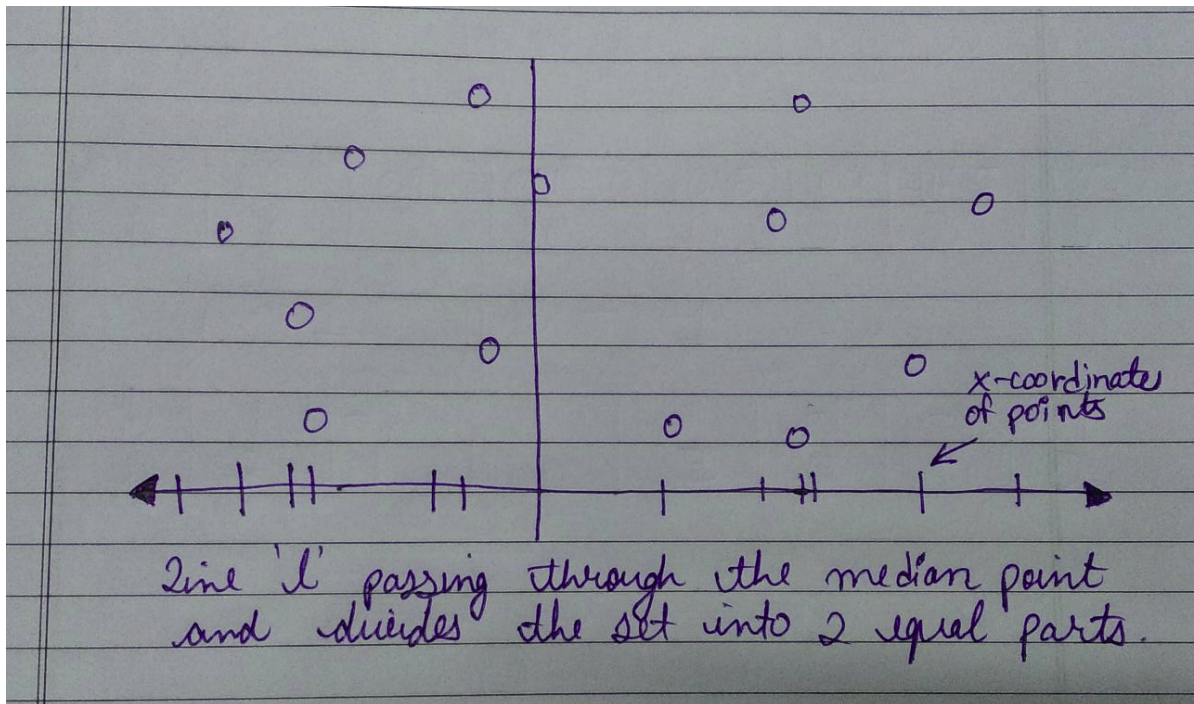 x-coordinate
of points
Line 'l' passing through the median point
and divides the set into 2 equal parts.